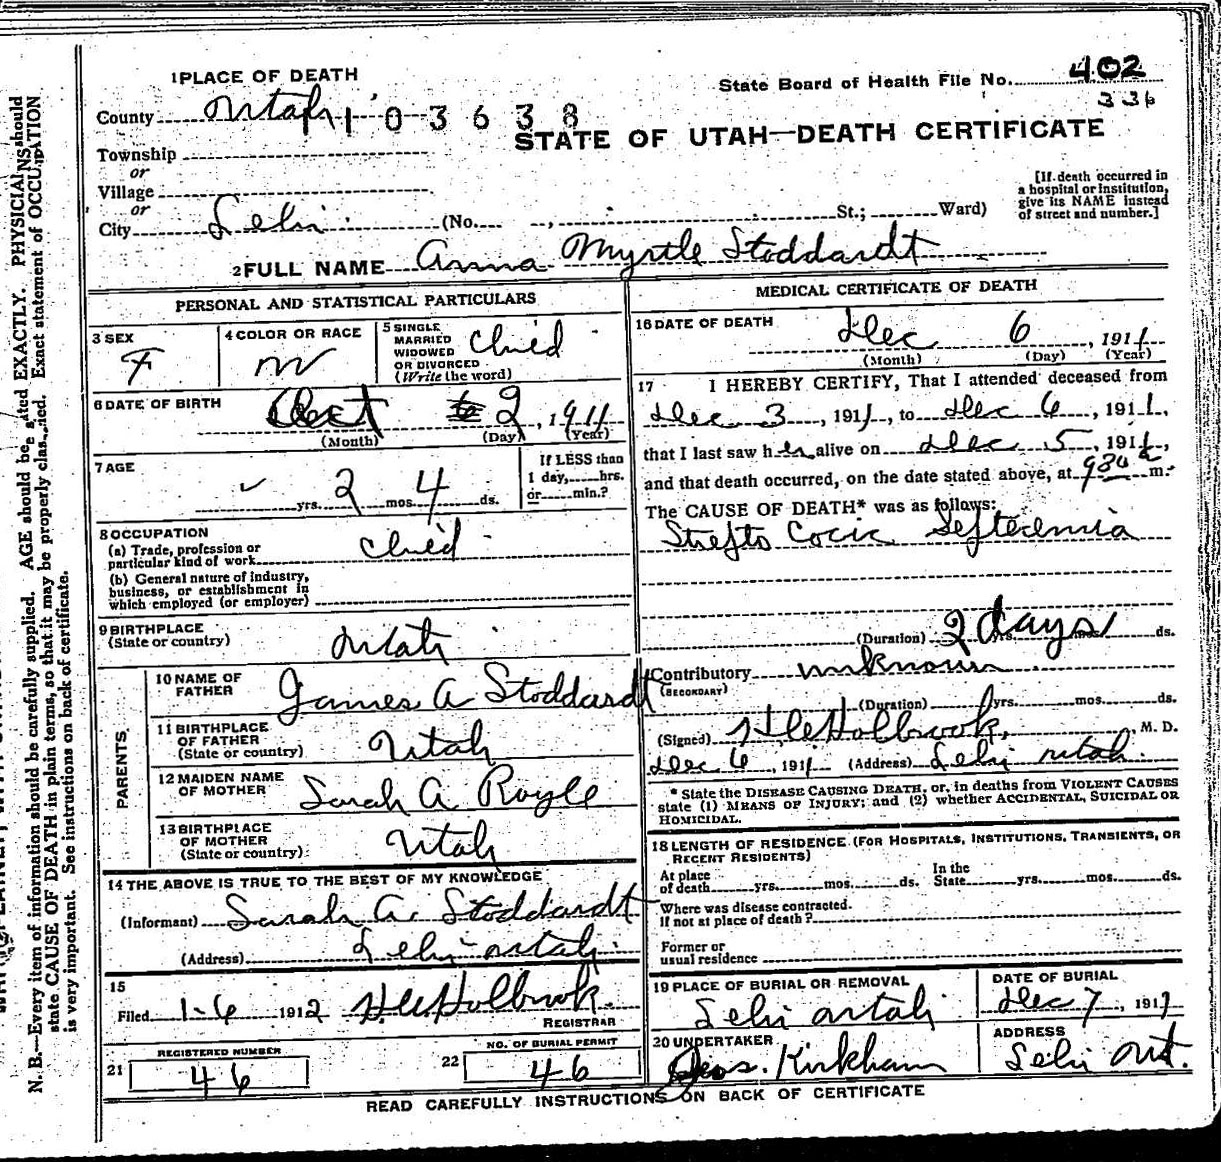 1 PLACE OF DEATH
State Board of Health File No. 402
336
County Utah 1103638
STATE OF UTAH—DEATH CERTIFICATE
Township
or
Village
or
City Lehi (No. , St.; Ward)
[If death occurred in a hospital or institution, give its NAME instead of street and number.]
2 FULL NAME Anna Myrtle Stoddardt
PERSONAL AND STATISTICAL PARTICULARS
3 SEX F
4 COLOR OR RACE W
5 SINGLE MARRIED WIDOWED OR DIVORCED (Write the word) Child
6 DATE OF BIRTH Oct 2, 1911
(Month) (Day) (Year)
7 AGE yrs. 2 mos. 4 ds.
If LESS than 1 day, hrs. or min.?
8 OCCUPATION
(a) Trade, profession or particular kind of work child
(b) General nature of industry, business, or establishment in which employed (or employer)
9 BIRTHPLACE (State or country) Utah
PARENTS
10 NAME OF FATHER James A Stoddardt
11 BIRTHPLACE OF FATHER (State or country) Utah
12 MAIDEN NAME OF MOTHER Sarah A Royle
13 BIRTHPLACE OF MOTHER (State or country) Utah
14 THE ABOVE IS TRUE TO THE BEST OF MY KNOWLEDGE
(Informant) Sarah A. Stoddardt
(Address) Lehi Utah.
15
Filed 1-6 1912 H. Holbrook.
REGISTRAR
21 REGISTERED NUMBER 46
22 NO. OF BURIAL PERMIT 46
MEDICAL CERTIFICATE OF DEATH
16 DATE OF DEATH Dec 6, 1911
(Month) (Day) (Year)
17 I HEREBY CERTIFY, That I attended deceased from
Dec 3, 1911, to Dec 6, 1911,
that I last saw her alive on Dec 5, 1911,
and that death occurred, on the date stated above, at 930 a m.
The CAUSE OF DEATH* was as follows:
Strepto Cocic Septecemia
(Duration) 2 days yrs. mos. ds.
Contributory unknown
(SECONDARY)
(Duration) yrs. mos. ds.
(Signed) H Holbrook, M. D.
Dec 6, 1911 (Address) Lehi Utah.
* State the DISEASE CAUSING DEATH, or, in deaths from VIOLENT CAUSES state (1) MEANS OF INJURY; and (2) whether ACCIDENTAL, SUICIDAL OR HOMICIDAL.
18 LENGTH OF RESIDENCE (FOR HOSPITALS, INSTITUTIONS, TRANSIENTS, OR RECENT RESIDENTS)
At place of death yrs. mos. ds. In the State yrs. mos. ds.
Where was disease contracted. If not at place of death?
Former or usual residence
19 PLACE OF BURIAL OR REMOVAL Lehi Utah
DATE OF BURIAL Dec 7, 1911
20 UNDERTAKER Geos. Kirkham
ADDRESS Lehi Ut.
READ CAREFULLY INSTRUCTIONS ON BACK OF CERTIFICATE
N. B.—Every item of information should be carefully supplied. AGE should be stated EXACTLY. PHYSICIANS should
state CAUSE OF DEATH in plain terms, so that it may be properly classified. Exact statement of OCCUPATION
is very important. See instructions on back of certificate.